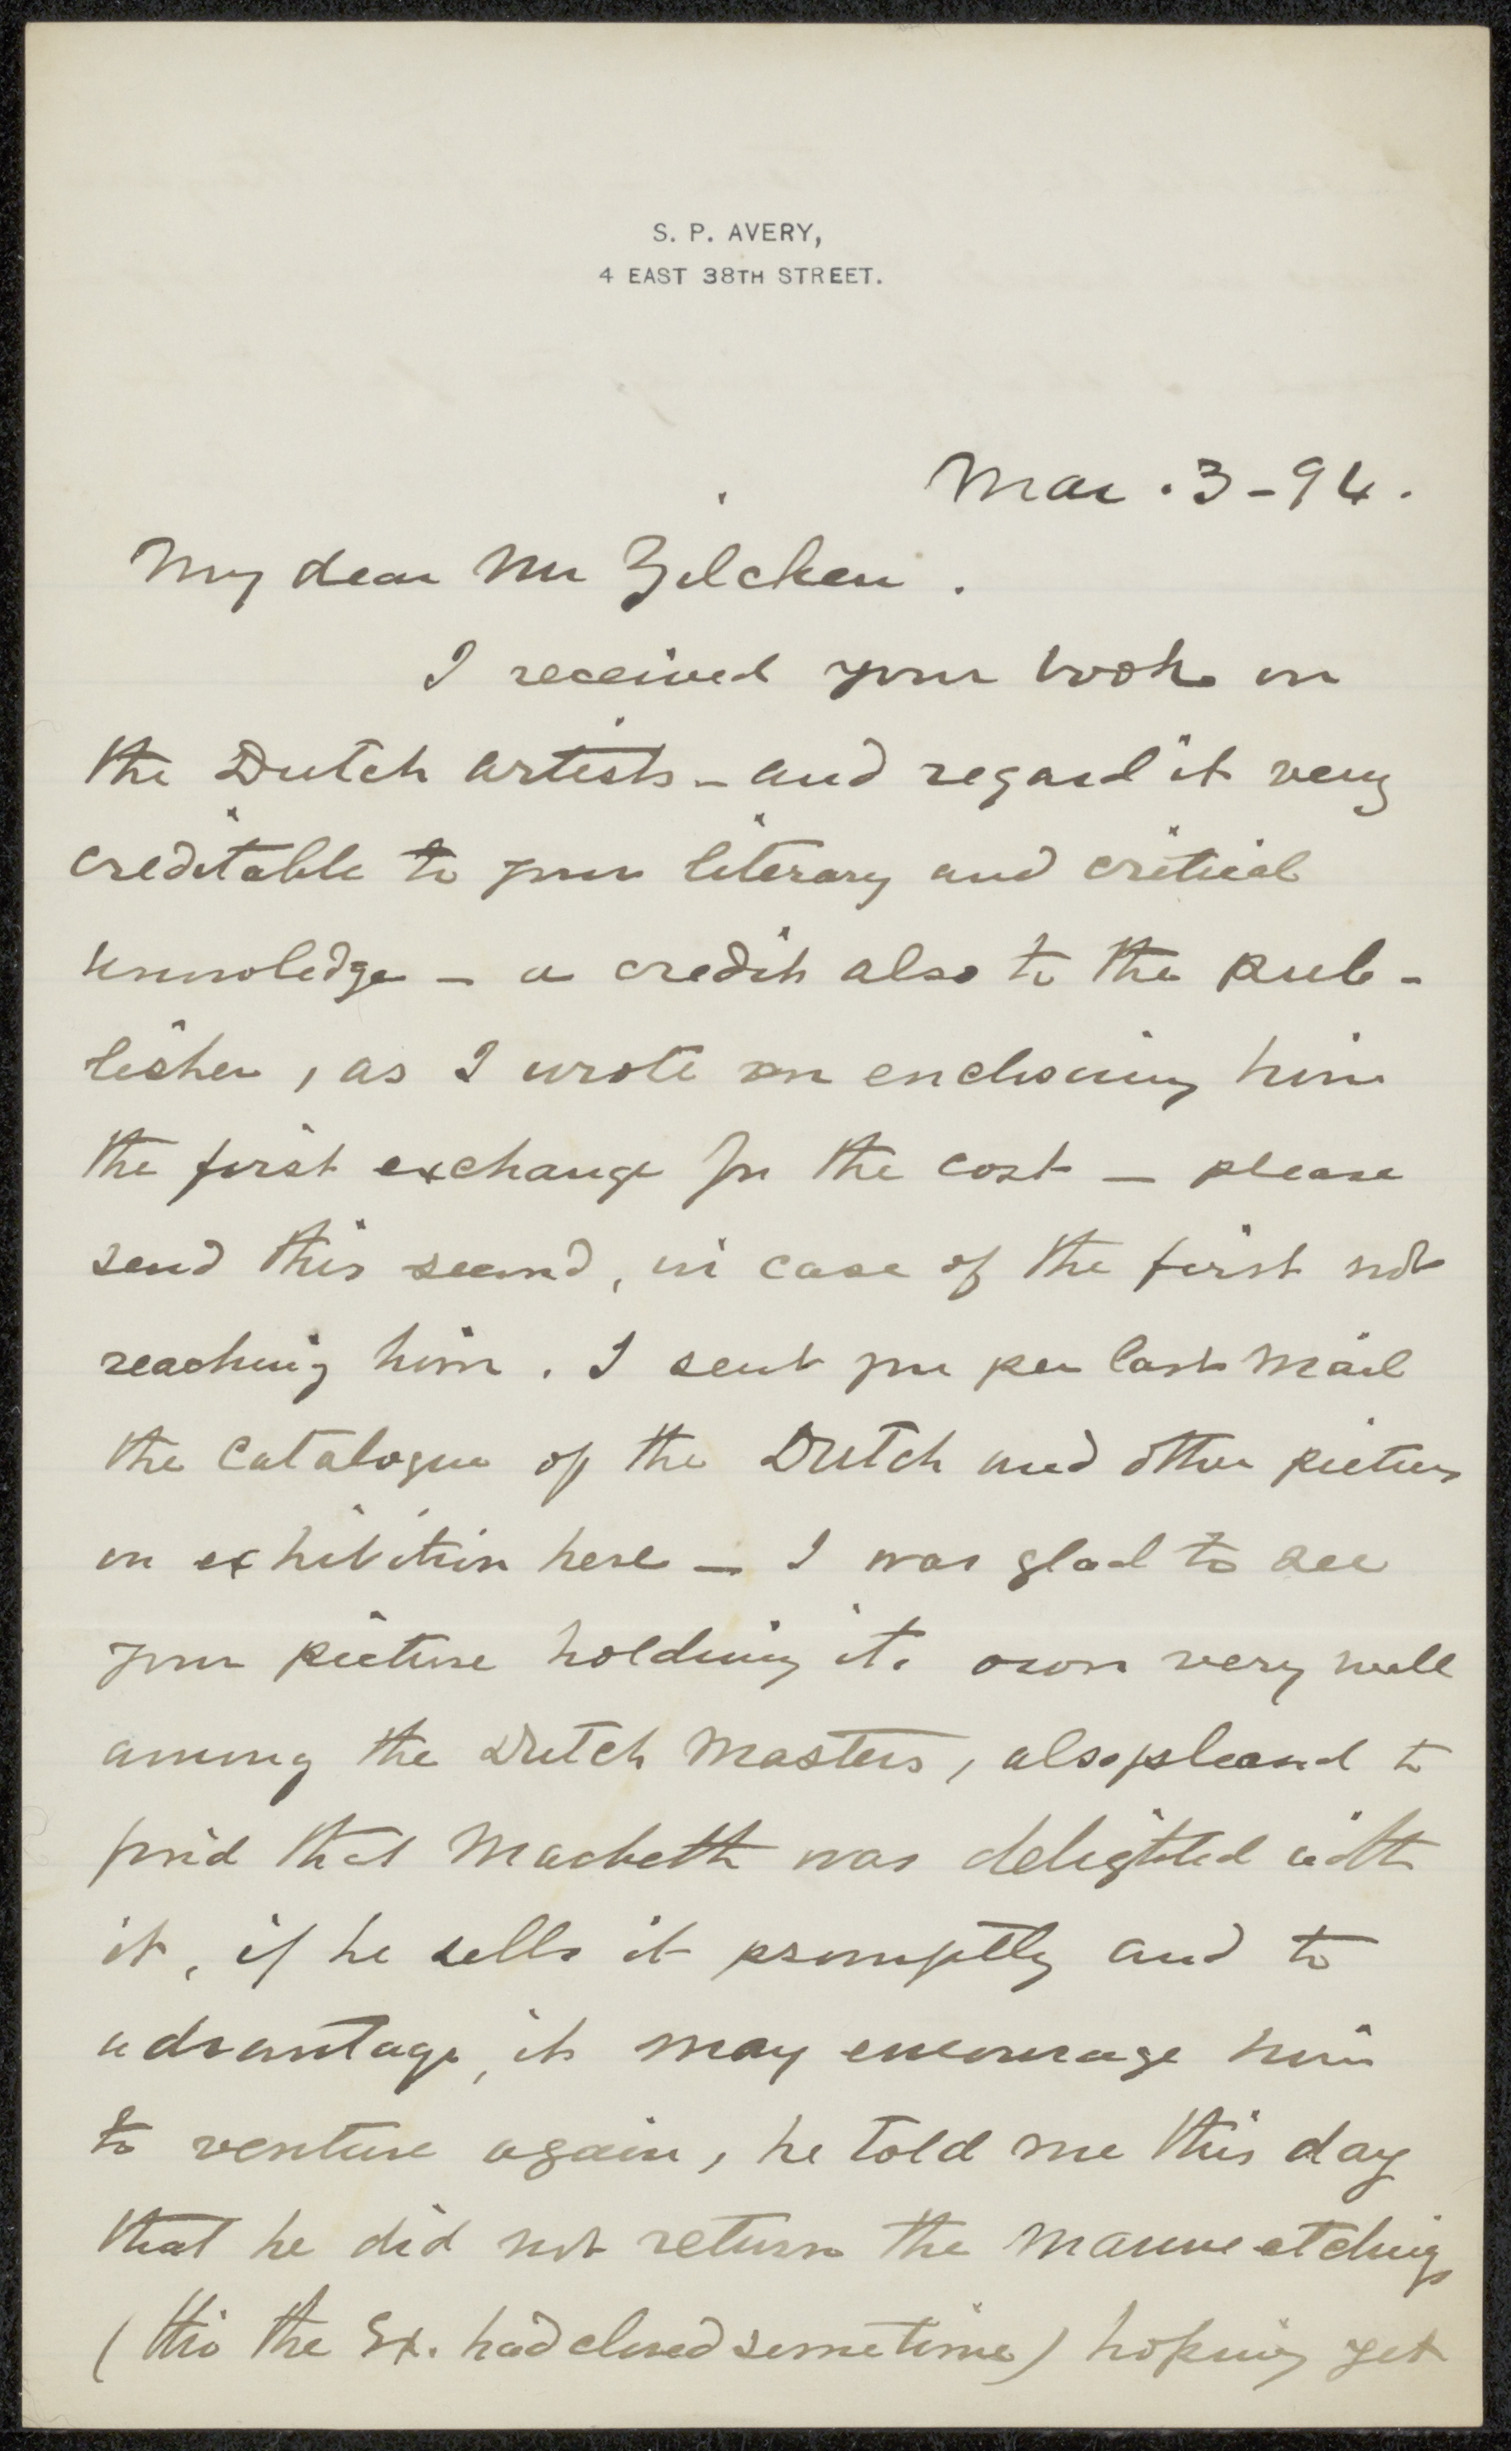 S. P. AVERY,
4 EAST 38TH STREET.
Mar. 3-94.
My dear Mr Zilcken.
I received your book on
the Dutch artists - and regard it very
creditable to your literary and critical
knowledge - a credit also to the pub-
lisher, as I wrote on enclosing him
the first exchange for the cost - please
send this second, in case of the first not
reaching him. I sent you per last mail
the Catalogue of the Dutch and other pictures
on exhibition here - I was glad to see
your picture holding its own very well
among the Dutch Masters, also pleased to
find that Macbeth was delighted with
it, if he sells it promptly and to
advantage, it may encourage him
to venture again, he told me this day
that he did not return the Mauve etchings
(tho the Ex. had closed sometime) hoping yet